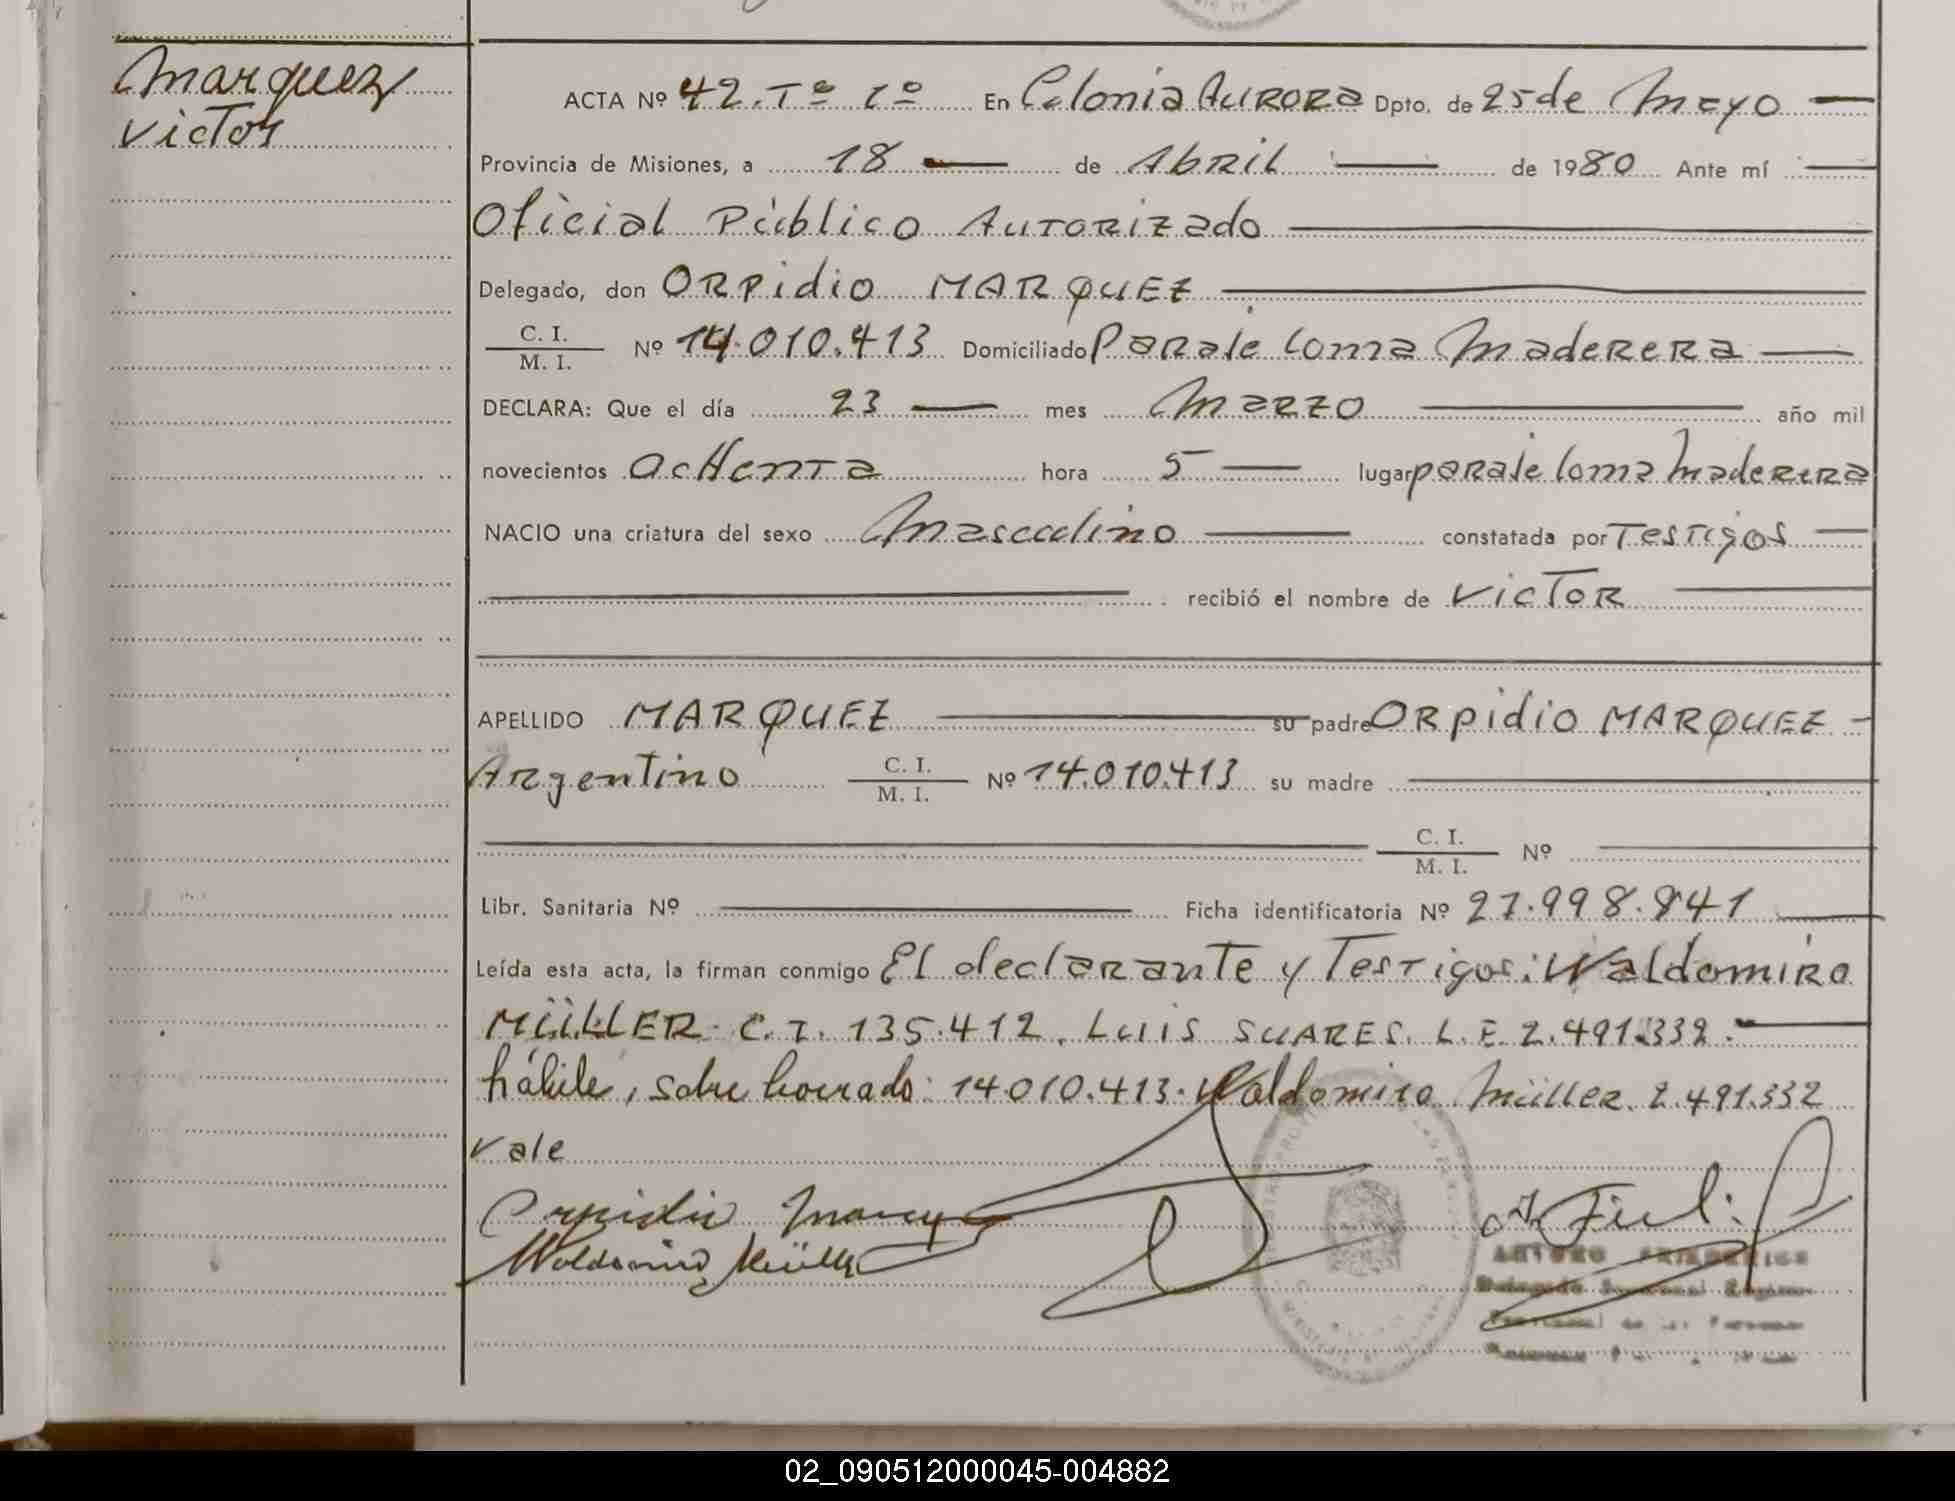 Marquez
Victor
ACTA Nº 42. Tº 1º En Colonia Aurora Dpto. de 25 de Mayo
Provincia de Misiones, a 18 de Abril de 1980 Ante mí
Oficial Público Autorizado
Delegado, don Orpidio MARQUEZ
C. I. / M. I. Nº 14.010.413 Domiciliado Paraje Loma Maderera
DECLARA: Que el día 23 mes Marzo año mil
novecientos ochenta hora 5 lugar paraje loma Maderera
NACIO una criatura del sexo Masculino constatada por Testigos
recibió el nombre de VICTOR
APELLIDO MARQUEZ su padre ORpidio MARQUEZ
Argentino C. I. / M. I. Nº 14.010.413 su madre
C. I. / M. I. Nº
Libr. Sanitaria Nº Ficha identificatoria Nº 27.998.841
Leída esta acta, la firman conmigo El declarante y Testigos: Waldomiro
MÜLLER C.I. 135.412. LUIS SUARES. L.E. 2.491.332.
hábile, sobre borrado: 14.010.413. Waldomiro Müller. 2.491.332
vale
Orpidio Marquez
Waldomiro Müller
ARTURO
Delegado
02_090512000045-004882